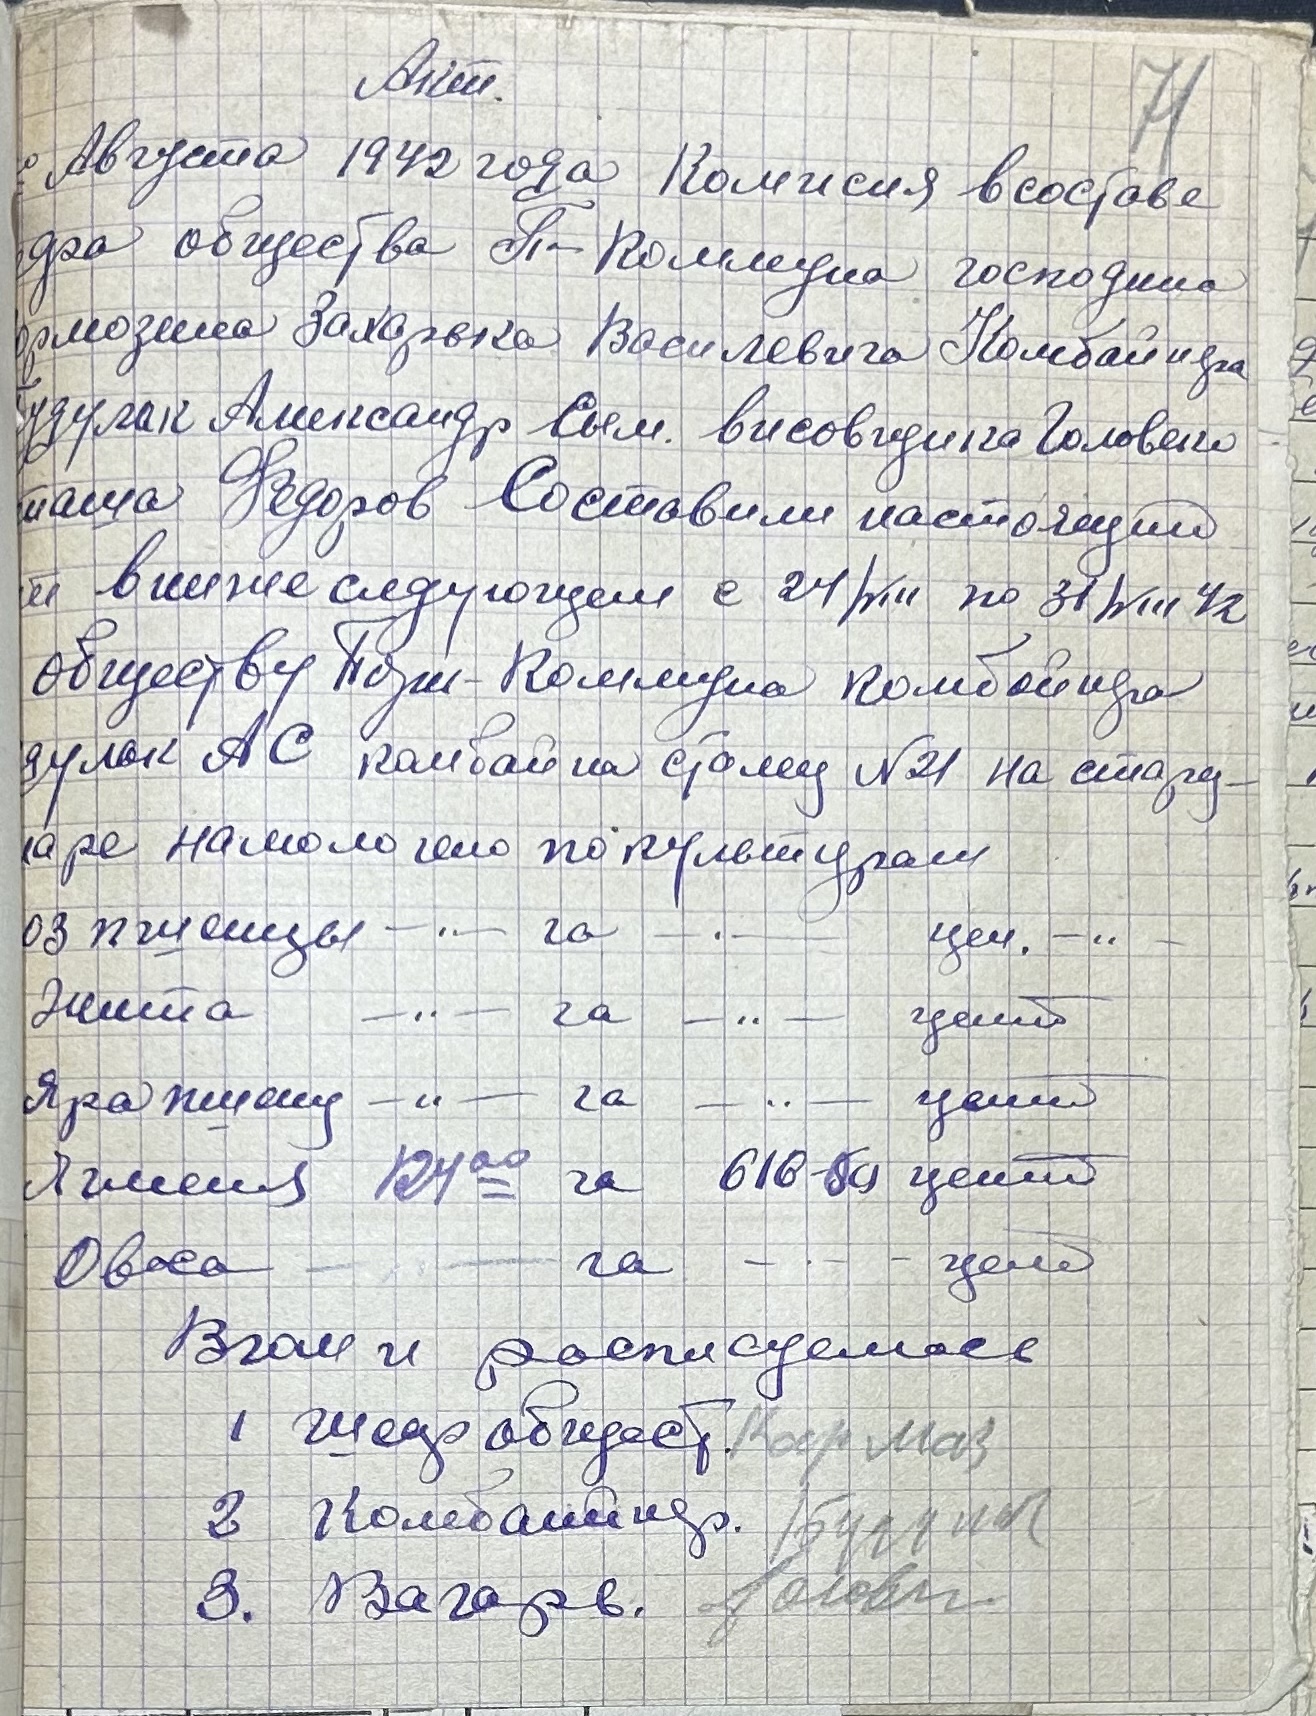 71
Акт.
Августа 1942 года Комисия в составе
общества П-Коммуна господина
Захарька Василевича Комбайнера
Александр Сем. висовщика Головско
Федоров Составили настоящий
в ниже следующем с 24/VIII по 31/VIII 42
обществу Пуш-Коммуна комбайнера
АС комбайна сталец №21 на стаци-
наре намолочено по культурам
оз пшеницы —"— га —"— цен. —"—
Жита —"— га —"— цент
Яра пшениц —"— га —"— цент
Ячменя 124 00 га 616-50 цент
Овоса — га — цент
В чом и росписуемось
1 шефр общест. Кармаз
2 Комбайнер.
3. Вагарв. Головк